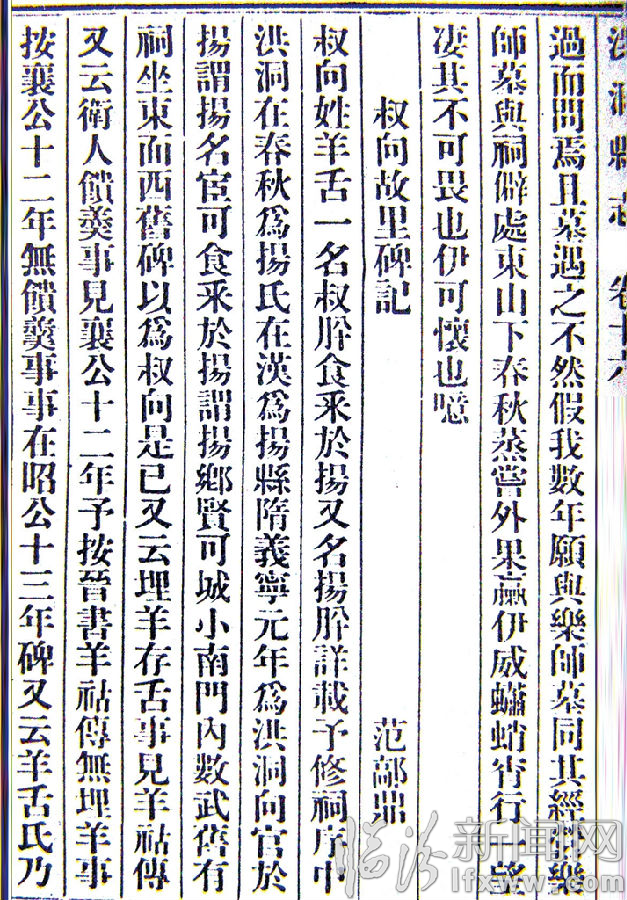 洪洞縣志　卷十六
過而問焉且墓遇之不然假我數年願與樂師墓同其經營樂
師墓與祠僻處東山下春秋蒸嘗外果蠃伊威蠨蛸宵行一望
凄其不可畏也伊可懷也噫
叔向故里碑記　范鄗鼎
叔向姓羊舌一名叔肸食釆於揚又名揚肸詳載予修祠序中
洪洞在春秋爲揚氏在漢爲揚縣隋義寧元年爲洪洞向官於
揚謂揚名宦可食釆於揚謂揚鄉賢可城小南門內數武舊有
祠坐東面西舊碑以爲叔向是已又云埋羊存舌事見羊祜傳
又云衛人饋羹事見襄公十二年予按晉書羊祜傳無埋羊事
按襄公十二年無饋羹事事在昭公十三年碑又云羊舌氏乃
临汾新闻网
lfxww.com